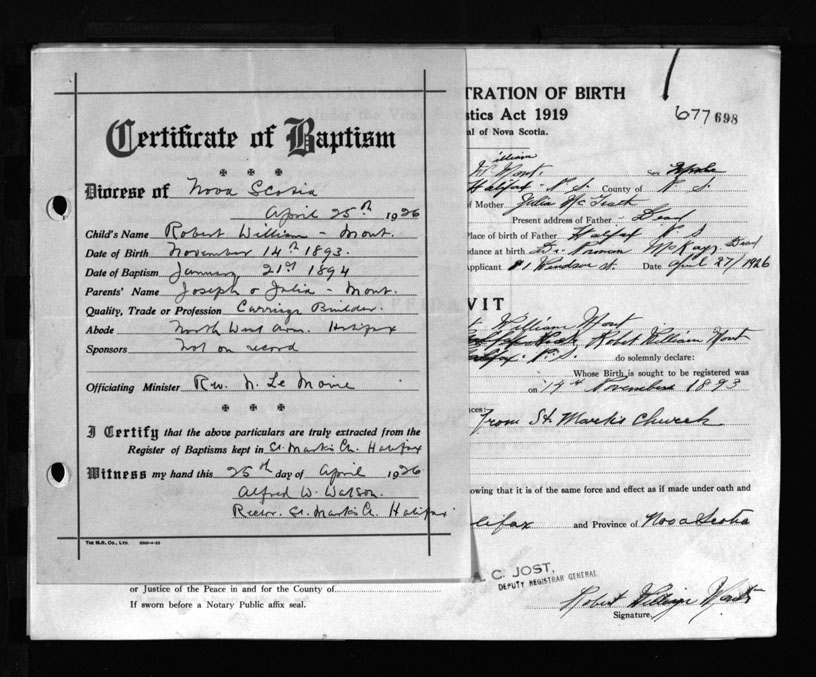 Certificate of Baptism
Diocese of Nova Scotia
April 25th 1926
Child's Name Robert William - Mont.
Date of Birth November 14th 1893.
Date of Baptism January 21st 1894
Parents' Name Joseph & Julia - Mont.
Quality, Trade or Profession Carriage Builder.
Abode North West Arm. Halifax
Sponsors Not on record
Officiating Minister Rev. N. Le Moine
I Certify that the above particulars are truly extracted from the
Register of Baptisms kept in St. Mark's Ch. Halifax
Witness my hand this 25th day of April 1926
Alfred W. Watson.
Rector. St. Mark's Ch. Halifax
The M.R. Co., Ltd.
TRATION OF BIRTH
stics Act 1919
al of Nova Scotia.
677698
illiam
Mont. Sex Male
Halifax - N. S. County of N. S.
of Mother Julia Mc
Present address of Father - Dead
Place of birth of Father Halifax N. S
dance at birth Dr. Norman McKay Dead
pplicant 81 Windsor st. Date April 27/1926
VIT
William Mont
Robert William Mont
N. S. do solemnly declare:
Whose Birth is sought to be registered was
on 14th November 1893
nces:-
From St. Mark's Church
owing that it is of the same force and effect as if made under oath and
alifax and Province of Nova Scotia
A. C. JOST,
DEPUTY REGISTRAR GENERAL
or Justice of the Peace in and for the County of
If sworn before a Notary Public affix seal.
Robert William Mont
Signature